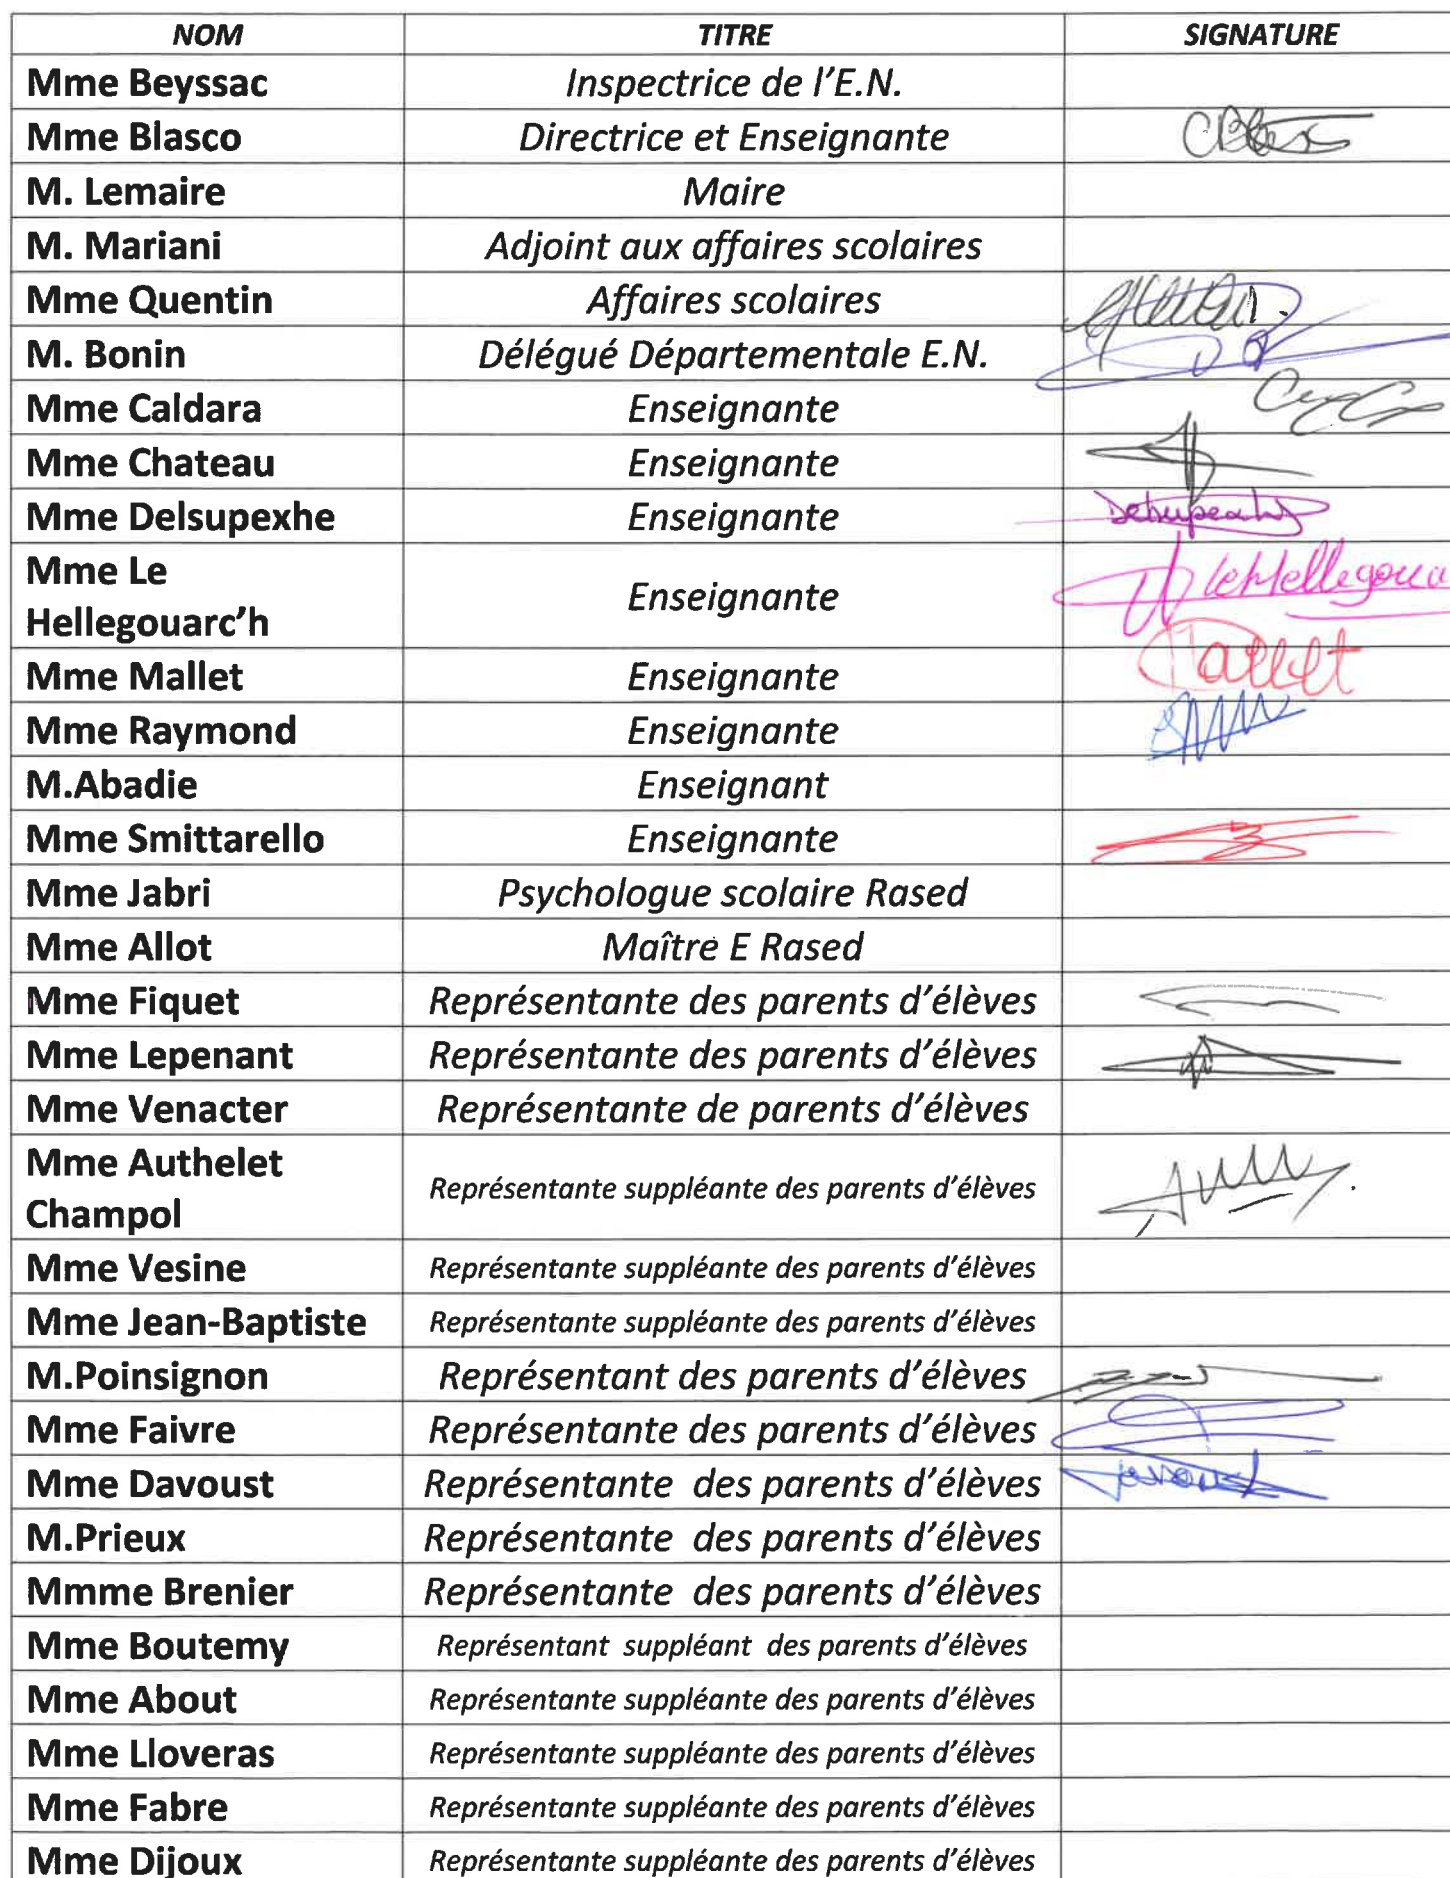 NOM TITRE SIGNATURE
Mme Beyssac Inspectrice de l'E.N.
Mme Blasco Directrice et Enseignante
M. Lemaire Maire
M. Mariani Adjoint aux affaires scolaires
Mme Quentin Affaires scolaires
M. Bonin Délégué Départementale E.N.
Mme Caldara Enseignante
Mme Chateau Enseignante
Mme Delsupexhe Enseignante
Mme Le
Hellegouarc'h Enseignante
Mme Mallet Enseignante Mallet
Mme Raymond Enseignante
M.Abadie Enseignant
Mme Smittarello Enseignante
Mme Jabri Psychologue scolaire Rased
Mme Allot Maître E Rased
Mme Fiquet Représentante des parents d'élèves
Mme Lepenant Représentante des parents d'élèves
Mme Venacter Représentante de parents d'élèves
Mme Authelet
Champol Représentante suppléante des parents d'élèves
Mme Vesine Représentante suppléante des parents d'élèves
Mme Jean-Baptiste Représentante suppléante des parents d'élèves
M.Poinsignon Représentant des parents d'élèves
Mme Faivre Représentante des parents d'élèves
Mme Davoust Représentante des parents d'élèves
M.Prieux Représentante des parents d'élèves
Mmme Brenier Représentante des parents d'élèves
Mme Boutemy Représentant suppléant des parents d'élèves
Mme About Représentante suppléante des parents d'élèves
Mme Lloveras Représentante suppléante des parents d'élèves
Mme Fabre Représentante suppléante des parents d'élèves
Mme Dijoux Représentante suppléante des parents d'élèves